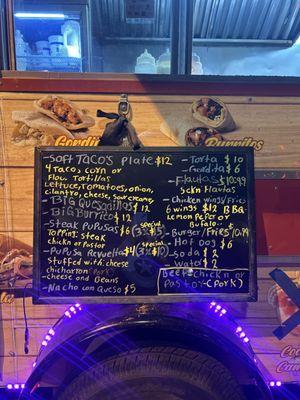 Gorditas
Burritos
-Soft TACO'S PLatE $12
4 Taco's, corn or
Flour Tortillas
Lettuce, Tomatoes, onion,
cilantro, cheese, sour creame
-BiG Quesadillas $12
-BiG Burrito $12
-Steak PuPusas $6 (3x$15) special
Topping: steak
chickn or Pastor
-PuPusa Revuelta $4 (3x$10) special
stuffed with: cheese
chicharron Pork
cheese and Beans
-Nacho con Queso $5
-Torta $10
-Gordita $6
-Flautas $10.99
5ckn Flautas
-Chicken wings/Fries
6 wings $12 BBQ-
Lemon PePer or
Buffalo
-Burger/Fries 10.99
-Hot Dog $6
-soda $2
-water $2
Beef-chicken or
Pastor-(PorK)